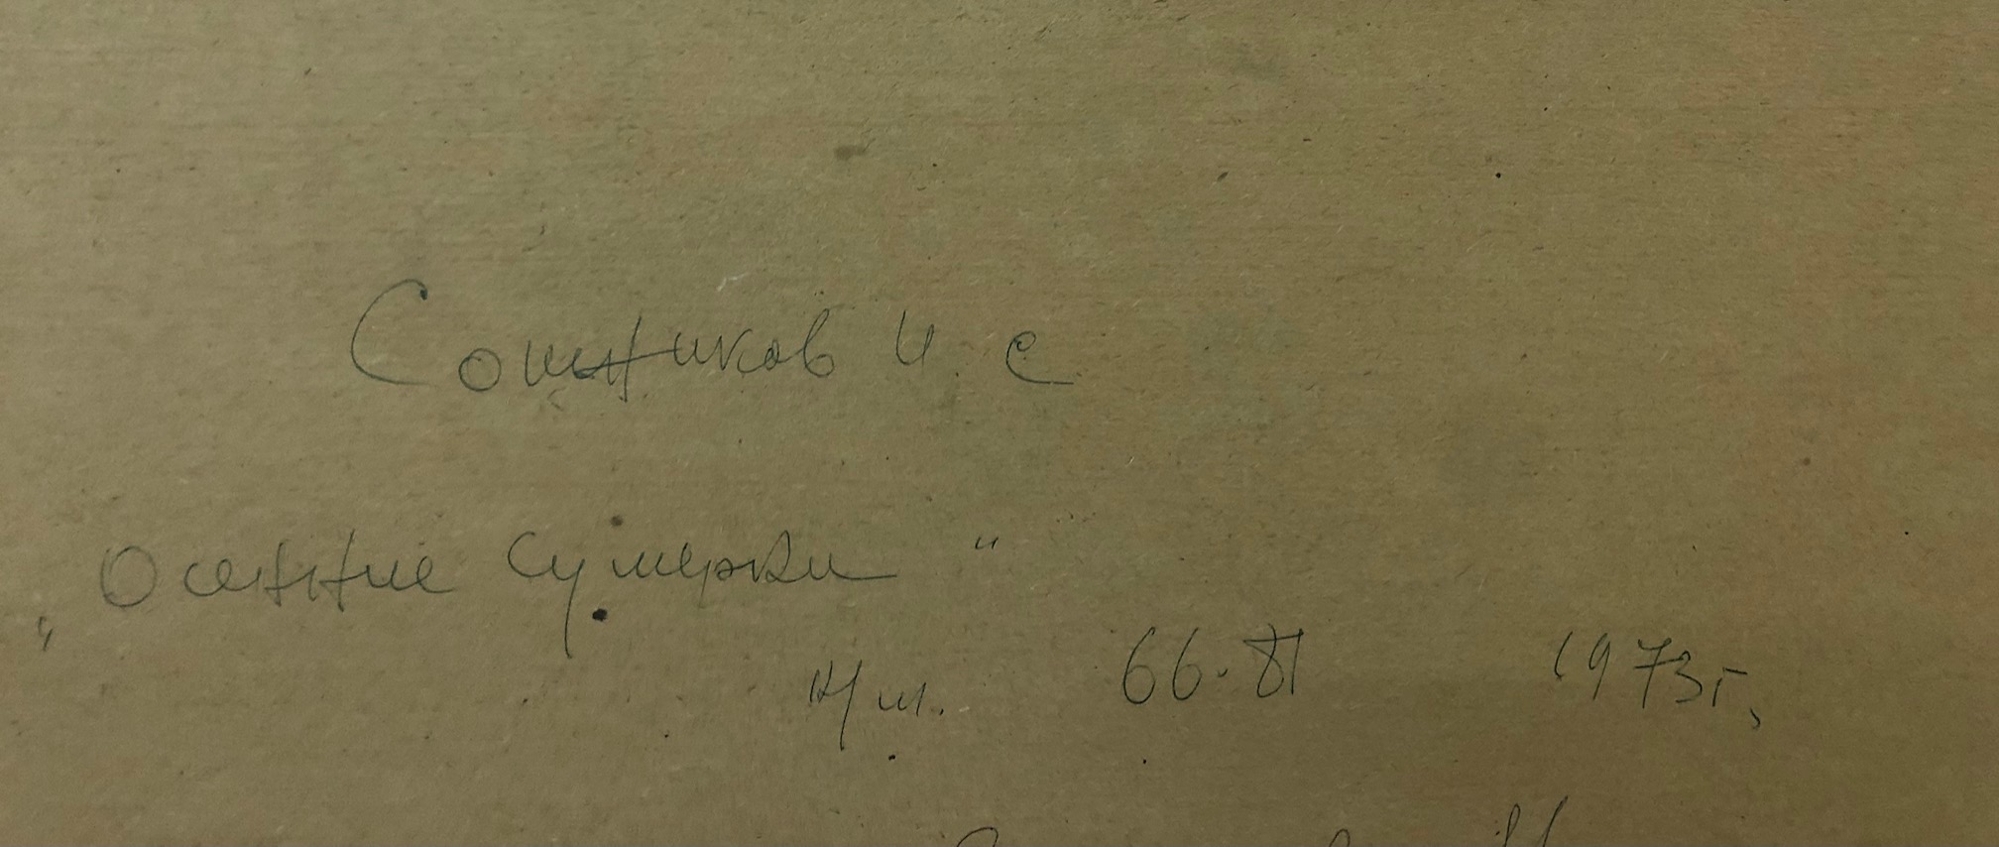 Сошников И. С
„Осенние сумерки“
к/м. 66·81 1973г.